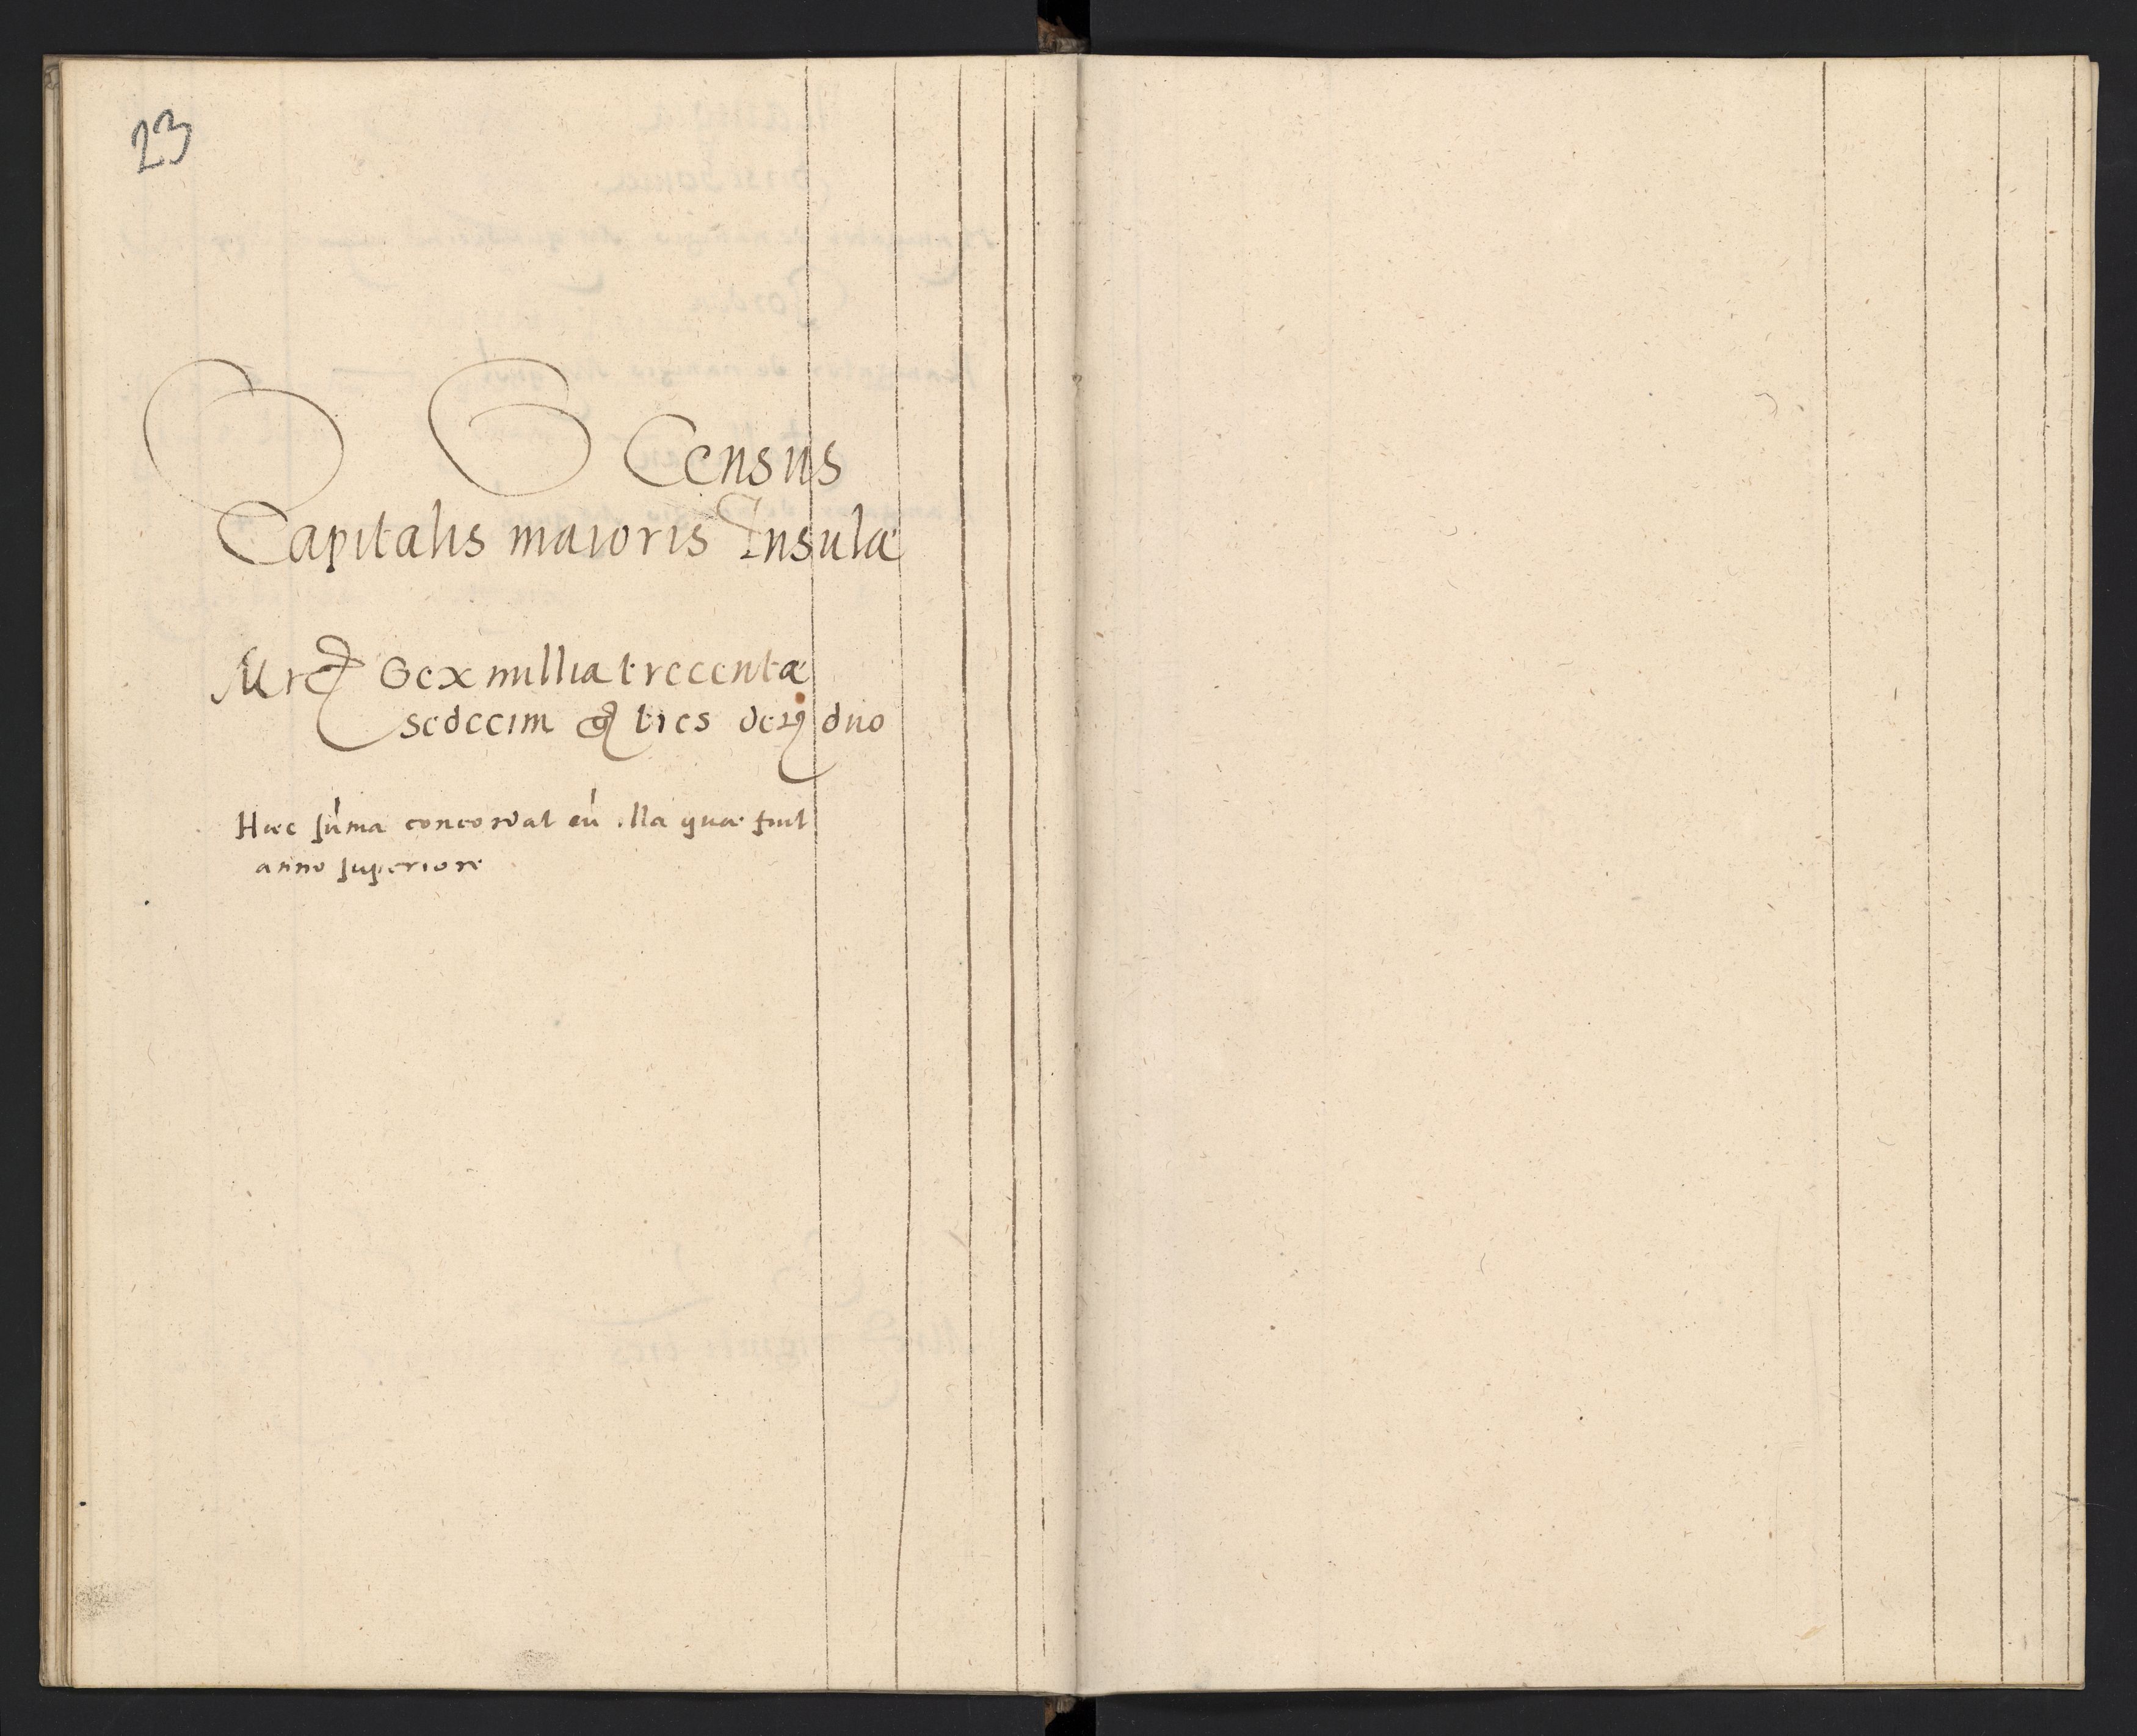 23
Census
Capitalis maioris Insulæ
Sex millia trecenta
sedecim & ties duo
Hæc sūma concordat cū illa quæ fuit
anno superiore